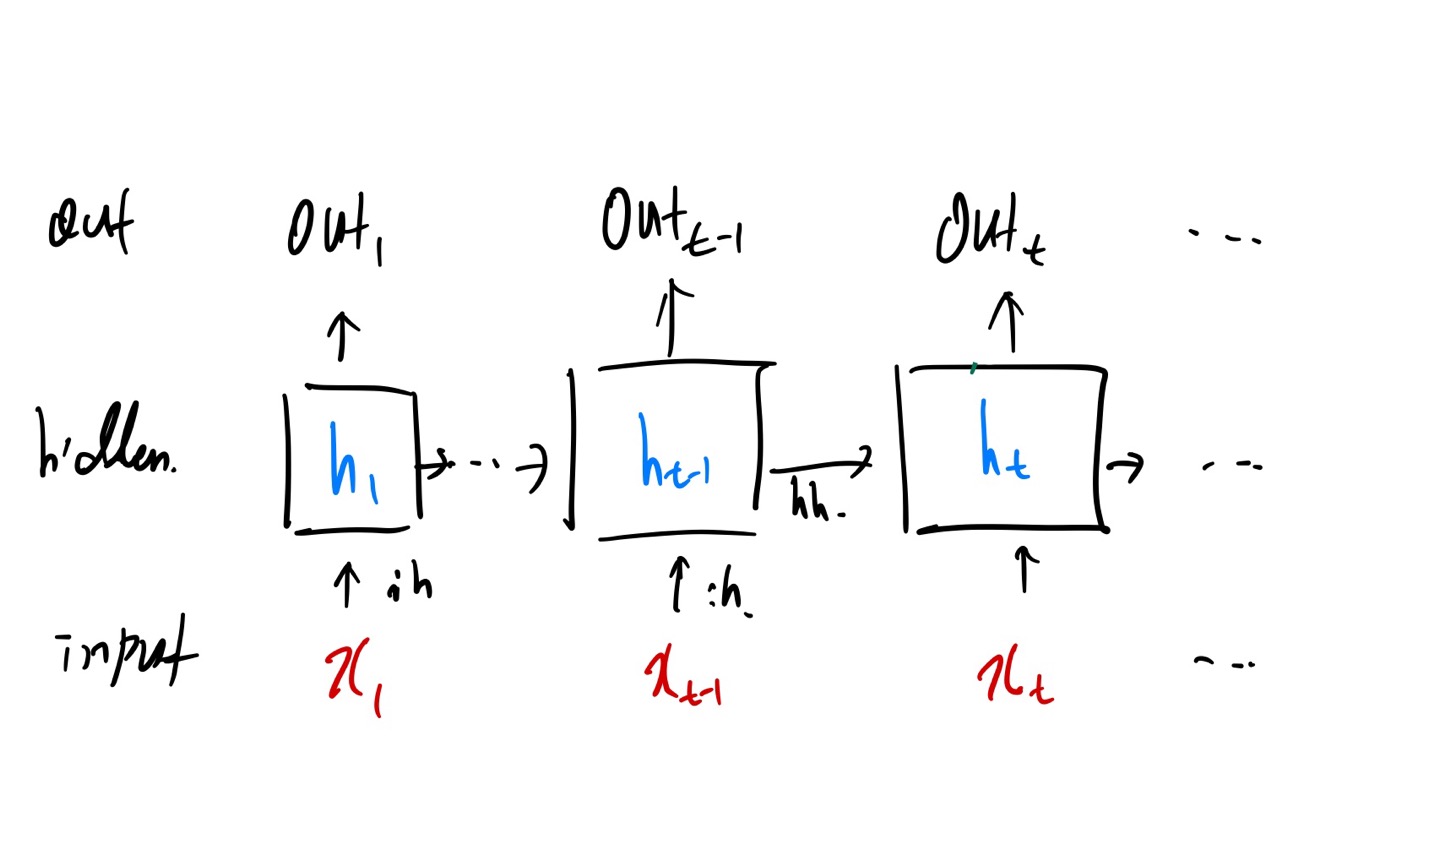 out out₁ outₜ₋₁ outₜ ...
hidden. h₁ ... hₜ₋₁ hₜ ...
hh.
ih ih.
input x₁ xₜ₋₁ xₜ ...